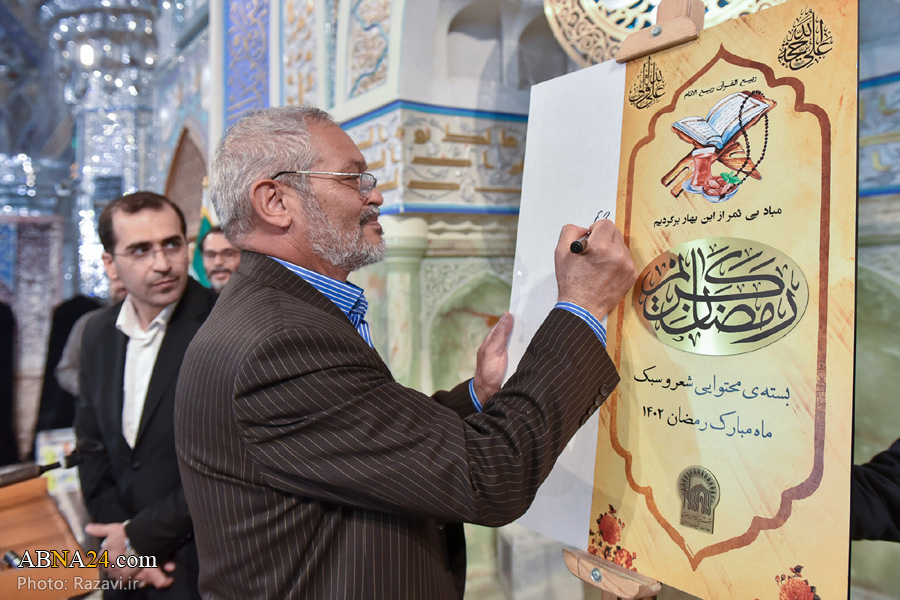 ربیع القرآن ربیع الانام
مباد بی ثمر از این بهار برگردیم
رمضان کریم
بسته‌ی محتوایی شعر و سبک
ماه مبارک رمضان ۱۴۰۲
ABNA24.com
Photo: Razavi.ir